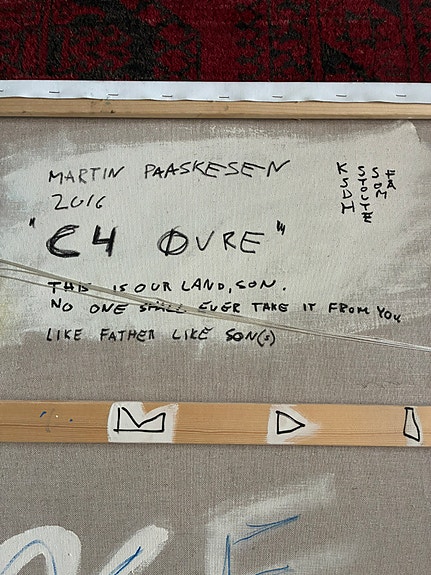 MARTIN PAASKESEN
2016
"C4 ØVRE"
THIS IS OUR LAND, SON.
NO ONE SHALL EVER TAKE IT FROM YOU
LIKE FATHER LIKE SON(S)
K S S F
S T O Å
D O M
H L
T
E